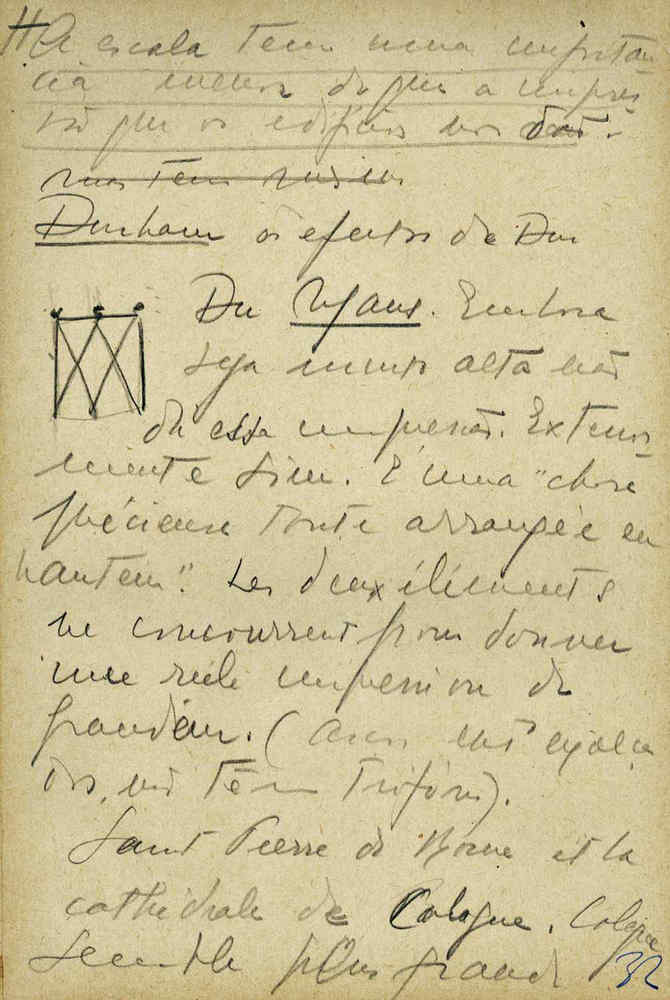 A escala tem uma importan
cia menor do que a impres
são que os edifícios nos dão.
Durham os efeitos de Dur
Du Mans. Embora
seja muito alta não
dá essa impressão. Exterior
mente sim. É uma "chose
précieuse toute arrangée en
hauteur". Les deux éléments
ne concourrent pour donner
une seule impression de
grandeur. (
não têm trifório).
Saint Pierre de Rome et la
cathédrale de Cologne. Cologne
semble plus grande
32